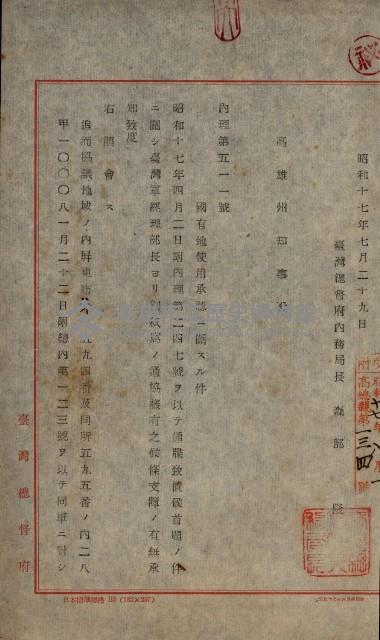 昭和十七年七月二十九日
臺灣總督府内務局長 森部 隆
高雄州知事
内理第五一一號
國有地使用承認ニ關スル件
昭和十七年四月二日附内理第二四七號ヲ以テ通牒致置候首題ノ件
ニ關シ臺灣軍經理部長ヨリ別紙寫ノ通協議有之候條支障ノ有無承
知致度
右照會ス
追而協議地域ノ内屏東 五九四番及同所五九五番ノ内二八
甲一〇〇〇八一月二十二日附總内第一二三號ヲ以テ同軍ニ對シ
臺灣總督府
高總第一三四 號
日本標準規格 B5 (182×257)